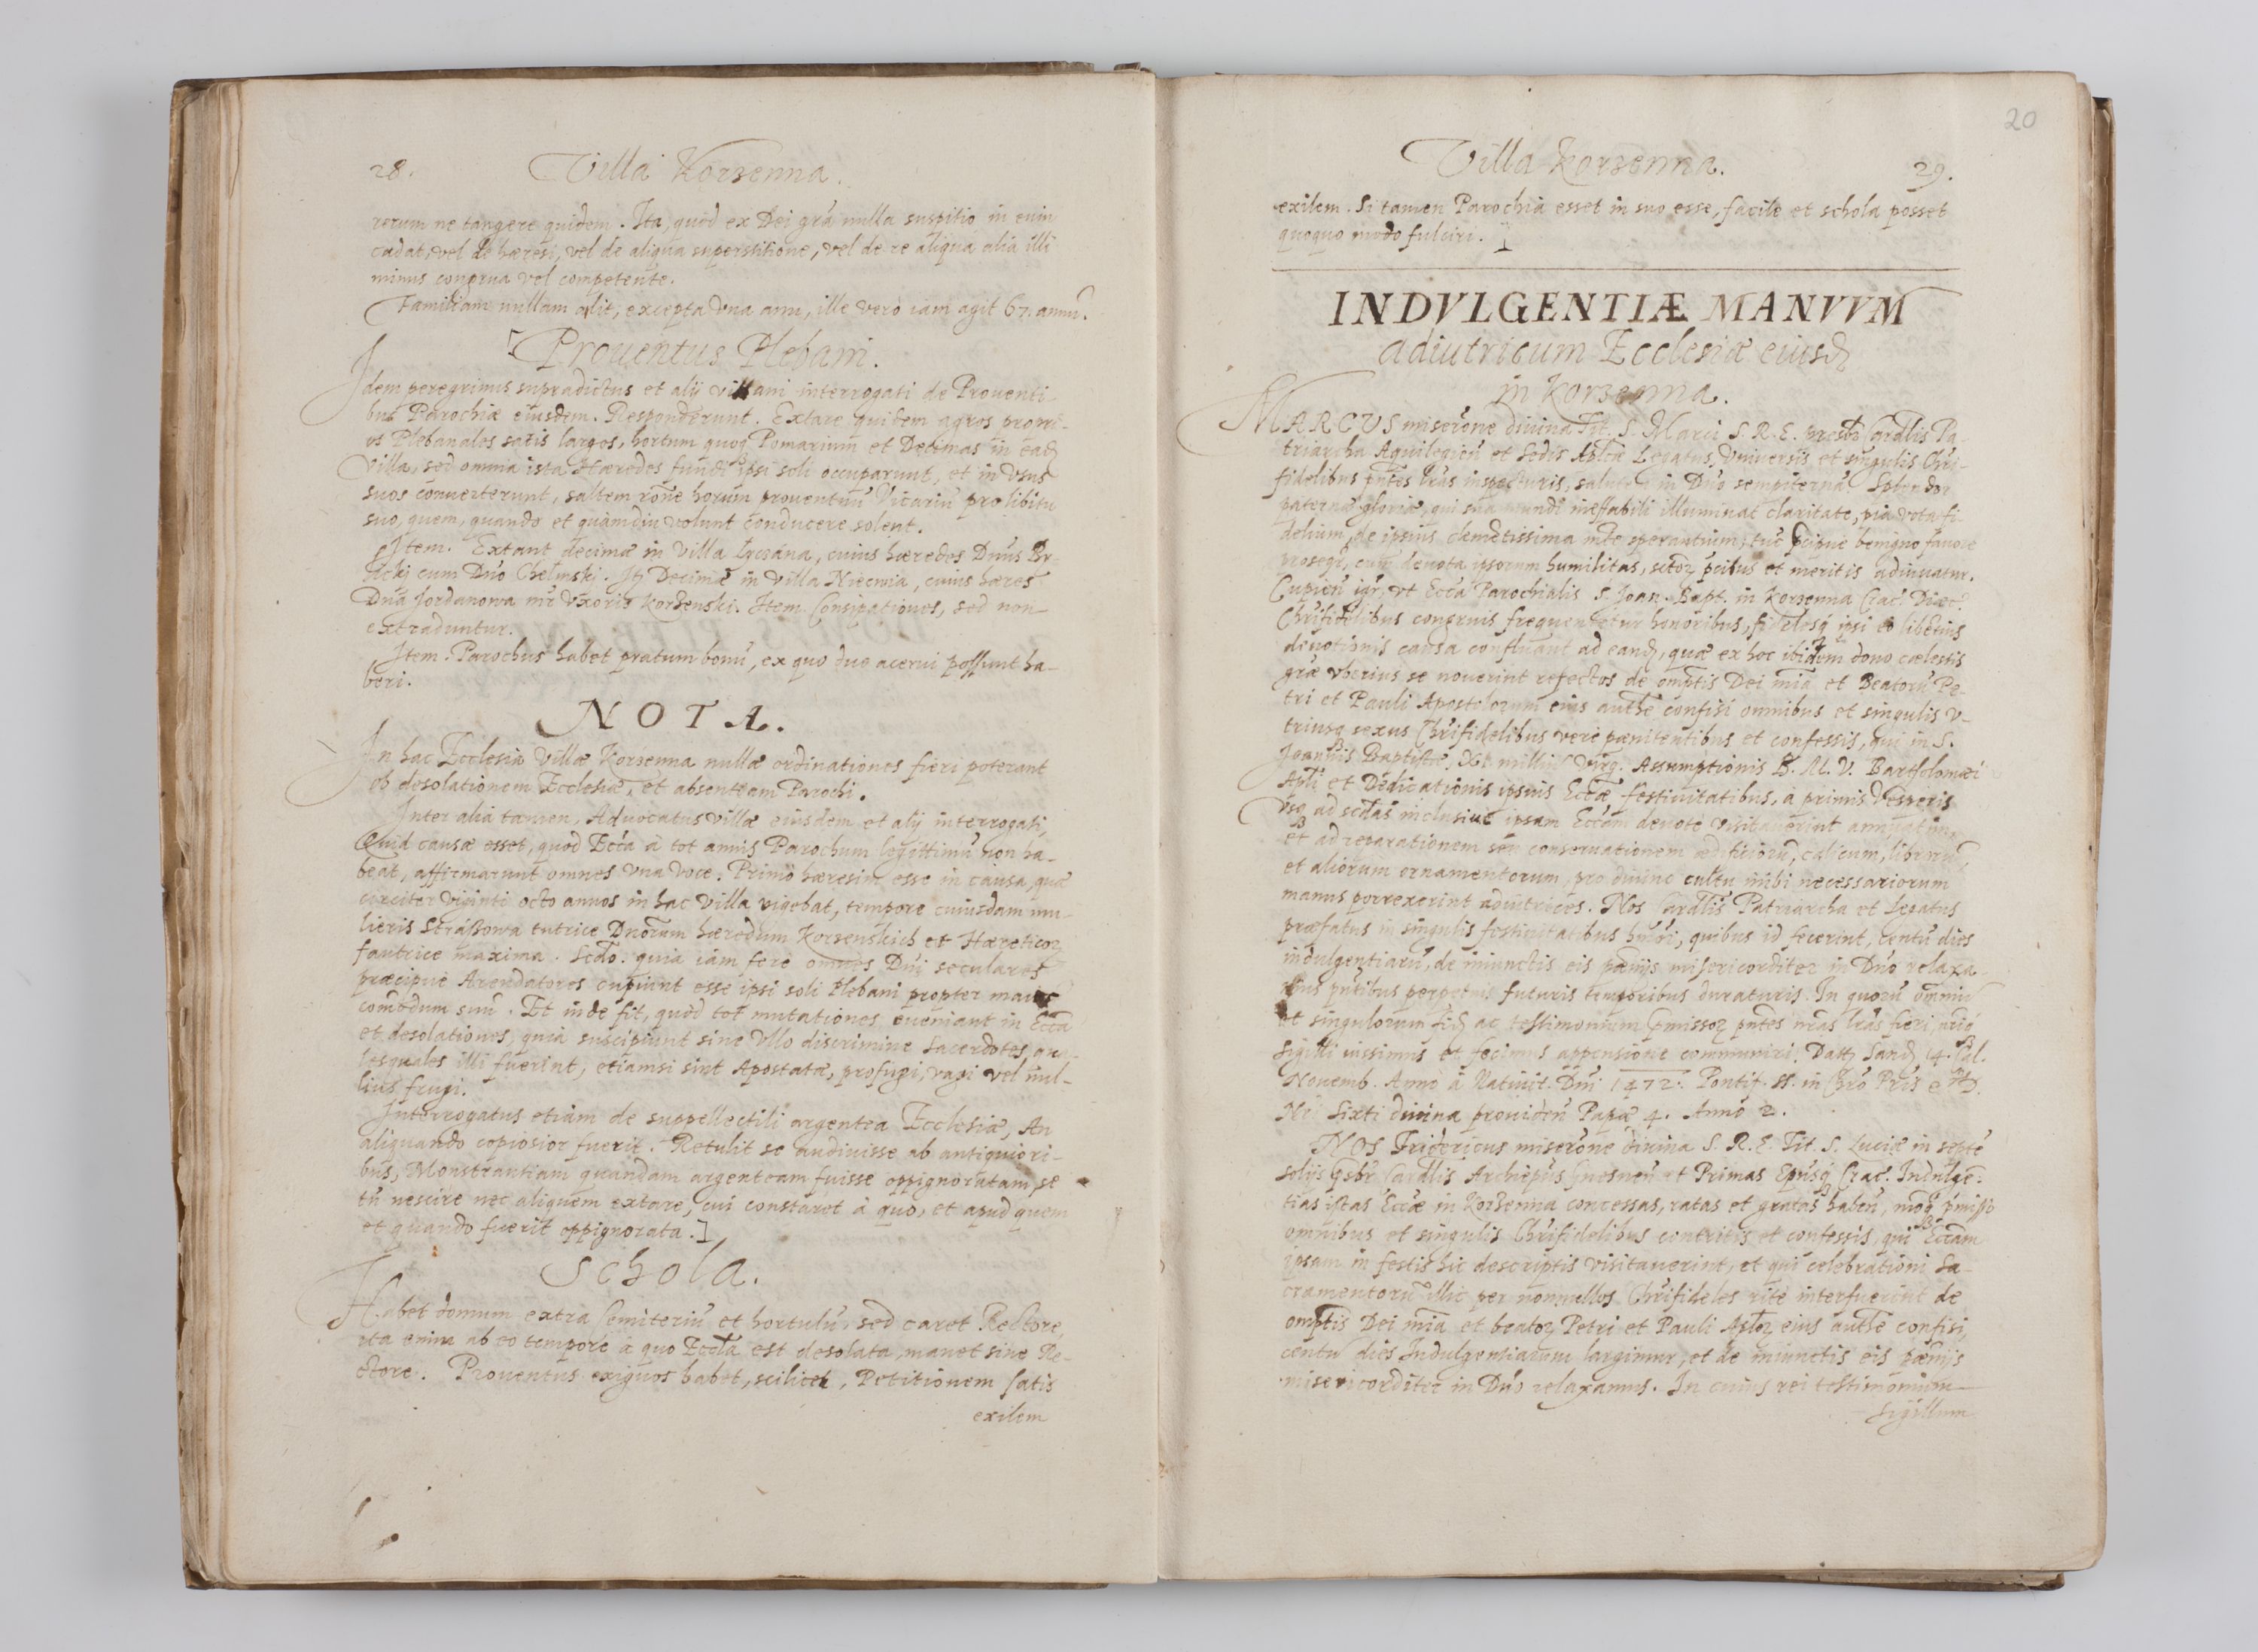 28. Villa Korzenna.
rerum ne tangere quidem. Ita, quod ex Dei grã nulla suspitio in eum
cadat, vel de hæresi, vel de aliqua superstitione, vel de re aliqua alia illi
minus congrua vel competente.
Familiam nullam alit, excepta una anu, ille vero iam agit 67. annũ.
Prouentus Plebani.
Idem peregrinus supradictus et alij villani interrogati de Prouenti-
bus Parochiæ eiusdem. Responderunt. Extare quidem agros proprios
Plebanales satis largos, hortum quoq Pomarium et Decimas in eadꝫ
Villa, sed omnia ista Hæredes fundi ipsi soli occuparunt, et in vsus
suos conuerterunt, saltem rõne horum prouentuũ Vicariũ pro libitu
suo, quem, quando et quàmdiu volunt conducere solent.
Item. Extant decimæ in villa cuius hæredes Dnus
cum Dño Chełmski. Itꝫ Decimæ in villa Niecwia, cuius hæres
Dna Jordanowa mr̃ Vxoris Korzenski. Item Consipationes, sed non
extraduntur.
Item. Parochus habet pratum bonũ, ex quo duo acerui possunt ha-
beri.
NOTA.
In hac Ecclesia Villæ Korzenna nullæ ordinationes fieri poterant
ob desolationem Ecclesiæ, et absentiam Parochi.
Inter alia tamen, Aduocatus villæ eiusdem et alij interrogati,
Quid causæ esset, quod Ecc̃a à tot annis Parochum legittimũ non ha-
beat, affirmarunt omnes vna voce. Primò hæresim esse in causa, quæ
circiter viginti octo annos in hac villa vigebat, tempore cuiusdam mu-
lieris Straszowa tutrice Dnorum hæredum Korzenskich et Hæreticoꝝ
fautrice maxima. Secdo. quia iam fere omnes Dni seculares
præcipuè Arendatores cupiunt esse ipsi soli Plebani propter maius
comodum suũ. Et inde fit, quòd tot mutationes eueniant in Ecc̃a
et desolationes, quia suscipiunt sine vllo discrimine Sacerdotes, qua-
lesquales illi fuerint, etiamsi sint Apostatæ, profugi, vagi vel nul-
lius frugi.
Interrogatus etiam de suppellectili argentea Ecclesiæ, An
aliquando copiosior fuerit. Retulit se audiuisse ab antiquiori-
bus, Monstrantiam quandam argenteam fuisse oppignoratam, se
tũ nescire nec aliquem extare, cui constaret à quo, et apud quem
et quando fuerit oppignorata.]
Schola.
Habet domum extra Cemiteriũ et hortulũ, sed caret Rectore,
ita enim ab eo tempore à quo Eccl̃a est desolata, manet sine Re-
ctore. Prouentus exiguos habet, scilicet, Petitionem satis
exilem
20
Villa Korzenna. 29.
exilem. Si tamen Parochia esset in suo esse, facile et schola posset
quoquo modo fulciri.
INDVLGENTIÆ MANVVM
adiutricum Ecclesiæ eiusdꝫ
in Korzenna.
MARCVS miserõne diuina Tit. S. Marci S. R. E. Presb Cardlis Pa-
triarcha Aquilegieñ et Sedis Apl̃cæ Legatus, Vniuersis et singulis Chri-
fidelibus pñtes lr̃as inspecturis, salutẽ in Dño sempiternã. Splendor
paternæ gloriæ, qui sua mundũ ineffabili illuminat claritate, pia vota fi-
delium, de ipsius clemẽtissima mte sperantium, tuc benigno fauore
proseqr, cum deuota ipsorum humilitas, sctoꝝ pcibus et meritis adiuuatur.
Cupien igr, vt Ecc̃a Parochialis S. Joan. Bapt. in Korzenna Crac. Diæc.
Chrifidelibus congruis frequentetur honoribus, fidelesq ipsi eò libentius
deuotionis causa confluant ad eandꝫ, quæ ex hoc ibidem dono cælestis
græ vberius se nouerint refectos de omptis Dei mia et Beatorũ Pe-
tri et Pauli Apostolorum eius autħe confisi omnibus et singulis v-
triusq sexus Chrifidelibus vere pænitentibus et confessis, qui in S.
Joannis Baptistæ, Xi milliũ Virg. Assumptionis B. M. V. Bartholomæi
Apli et Dedicationis ipsius Eccæ festiuitatibus, à primis Vesperis
vsq ad scdas inclusiuè ipsam Ecc̃am deuotè visitauerint annuatim,
et ad reparationem seu conseruationem ædificiorũ, calicum, librorũ,
et aliorum ornamentorum, pro diuino cultu inibi necessariorum
manus porrexerint adiutrices. Nos Cardlis Patriarcha et Legatus
præfatus in singulis festiuitatibus huioi, quibus id fecerint, centũ dies
indulgentiarũ, de iniunctis eis pænijs misericorditer in Dño relaxa-
mus pñtibus perpetuis futuris temporibus duraturis. In quorũ omniũ
et singulorum fidꝫ ac testimonium pmissoꝝ pñtes nr̃as lr̃as fieri, nriq
Sigilli iussimus et fecimus appensione communiri. Datꝫ Sandꝫ 14. Cal.
Nouemb. Anno à Natiuit. Dni 1472. Pontif. SS. in Chro Pris et D.
Ni Sixti diuina prouideñ Papæ 4. Anno 2.
NOS Fridericus miserõne diuina S. R. E. Tit. S. Luciæ in septẽ
solijs Cardlis Archiepus Gnesneñ et Primas Epusq Crac. Indulgẽ-
tias istas Eccæ in Korzenna concessas, ratas et gratas habeñ, moq pmisso
omnibus et singulis Chrifidelibus contritis et confessis, qui Ecc̃am
ipsam in festis hic descriptis visitauerint, et qui celebrationi Sa-
cramentorũ illic per nonnullos Chrifideles ritè interfuerint de
omptis Dei mia et beatoꝝ Petri et Pauli Aploꝝ eius autħe confisi,
centũ dies Indulgentiarum largimur, et de iniunctis eis pænijs
misericorditer in Dño relaxamus. In cuius rei testimonium
Sigillum